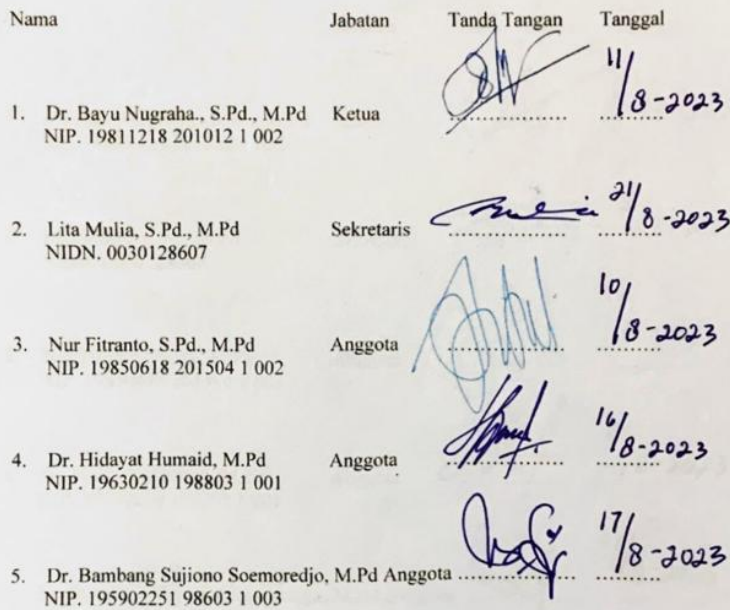 Nama Jabatan Tanda Tangan Tanggal
1. Dr. Bayu Nugraha., S.Pd., M.Pd Ketua .................. 11/8-2023
NIP. 19811218 201012 1 002
2. Lita Mulia, S.Pd., M.Pd Sekretaris .................. 21/8-2023
NIDN. 0030128607
3. Nur Fitranto, S.Pd., M.Pd Anggota .................. 10/8-2023
NIP. 19850618 201504 1 002
4. Dr. Hidayat Humaid, M.Pd Anggota .................. 16/8-2023
NIP. 19630210 198803 1 001
5. Dr. Bambang Sujiono Soemoredjo, M.Pd Anggota .................. 17/8-2023
NIP. 195902251 98603 1 003